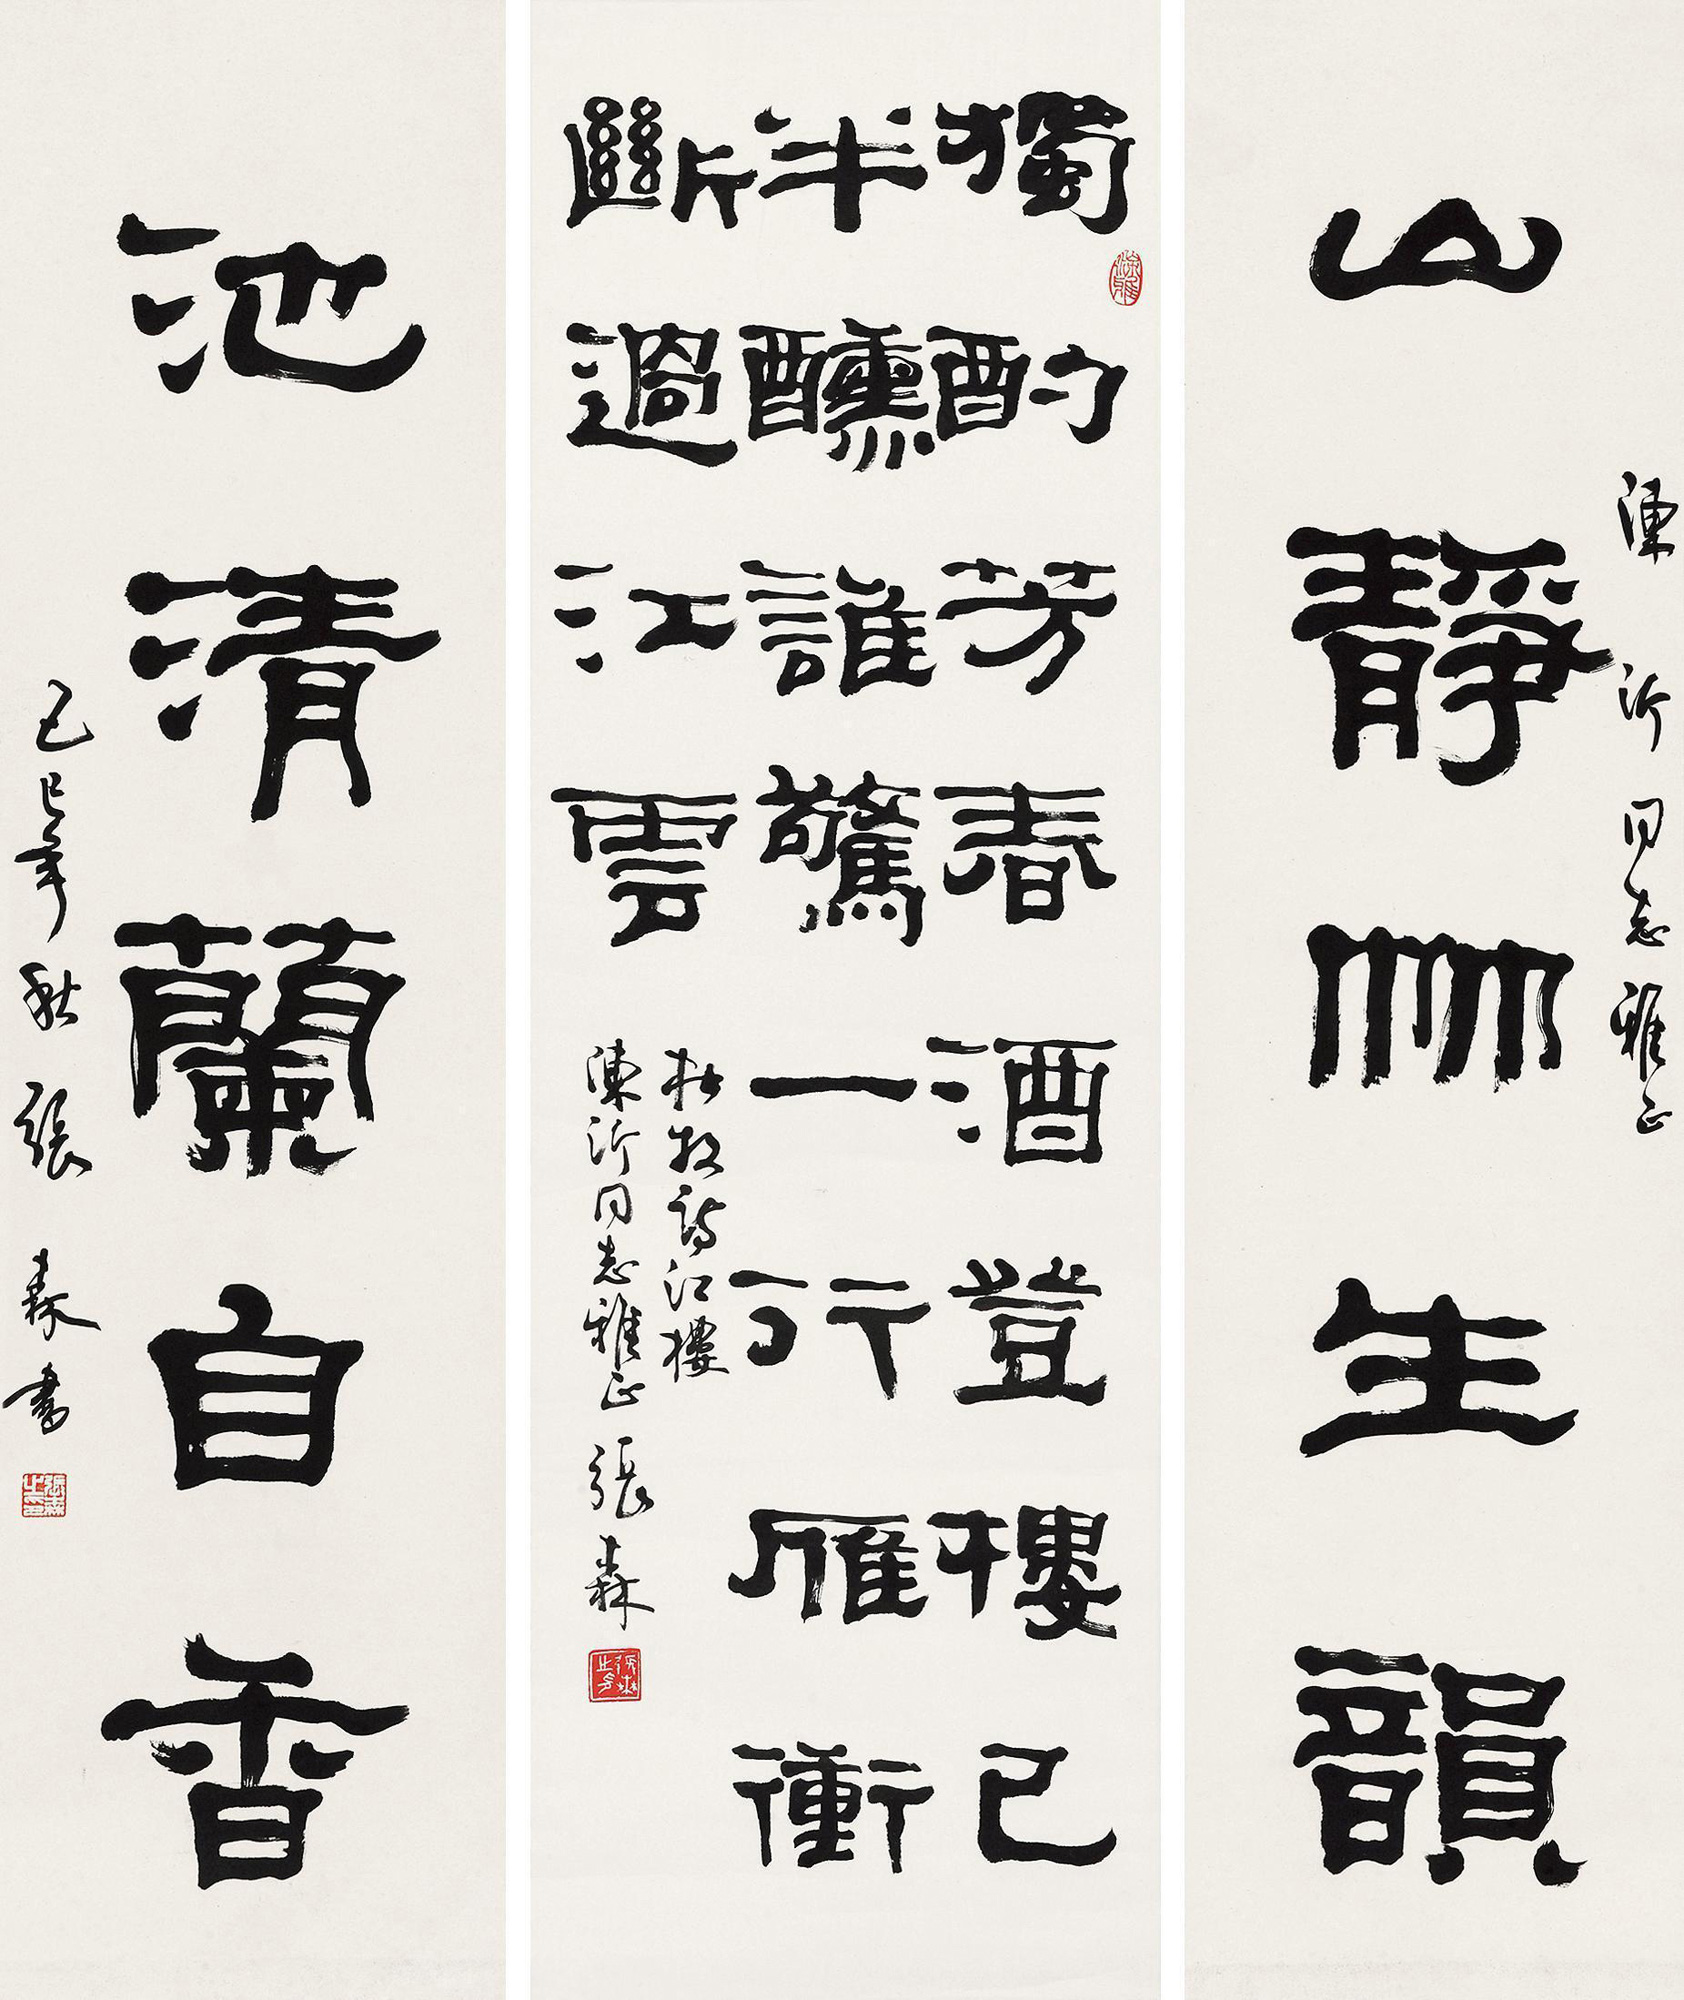 陳沂同志雅正
山靜竹生韻
獨酌芳春酒登樓已
半醺誰驚一行雁衝
斷過江雲
杜牧詩江樓
陳沂同志雅正 張森
張森之印
池清蘭自香
己巳年秋張森書
張森之印